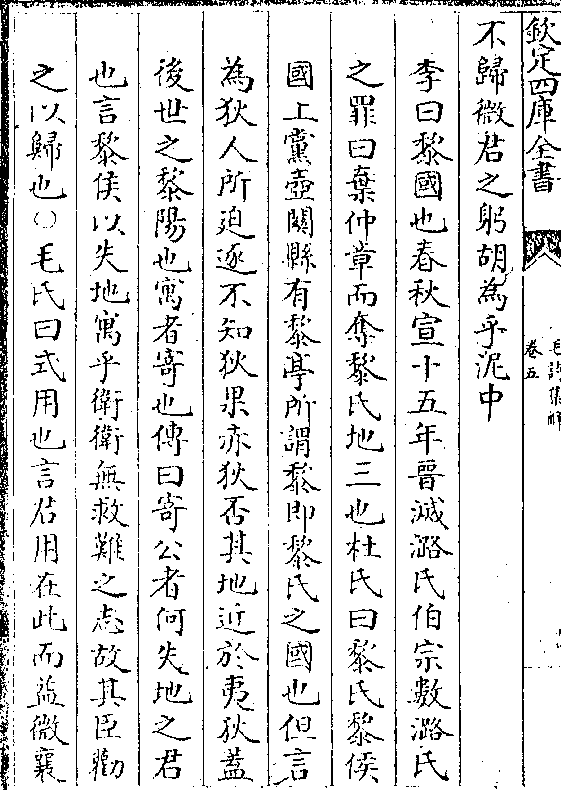 欽定四庫全書
毛詩集解
卷五
不歸微君之躬胡為乎泥中
李曰黎國也春秋宣十五年晉滅潞氏伯宗數潞氏
之罪曰棄仲章而奪黎氏地三也杜氏曰黎氏黎侯
國上黨壺關縣有黎亭所謂黎即黎氏之國也但言
為狄人所迫逐不知狄果赤狄否其地近於夷狄蓋
後世之黎陽也寓者寄也傳曰寄公者何失地之君
也言黎侯以失地寓乎衛衛無救難之志故其臣勸
之以歸也〇毛氏曰式用也言君用在此而益微襄